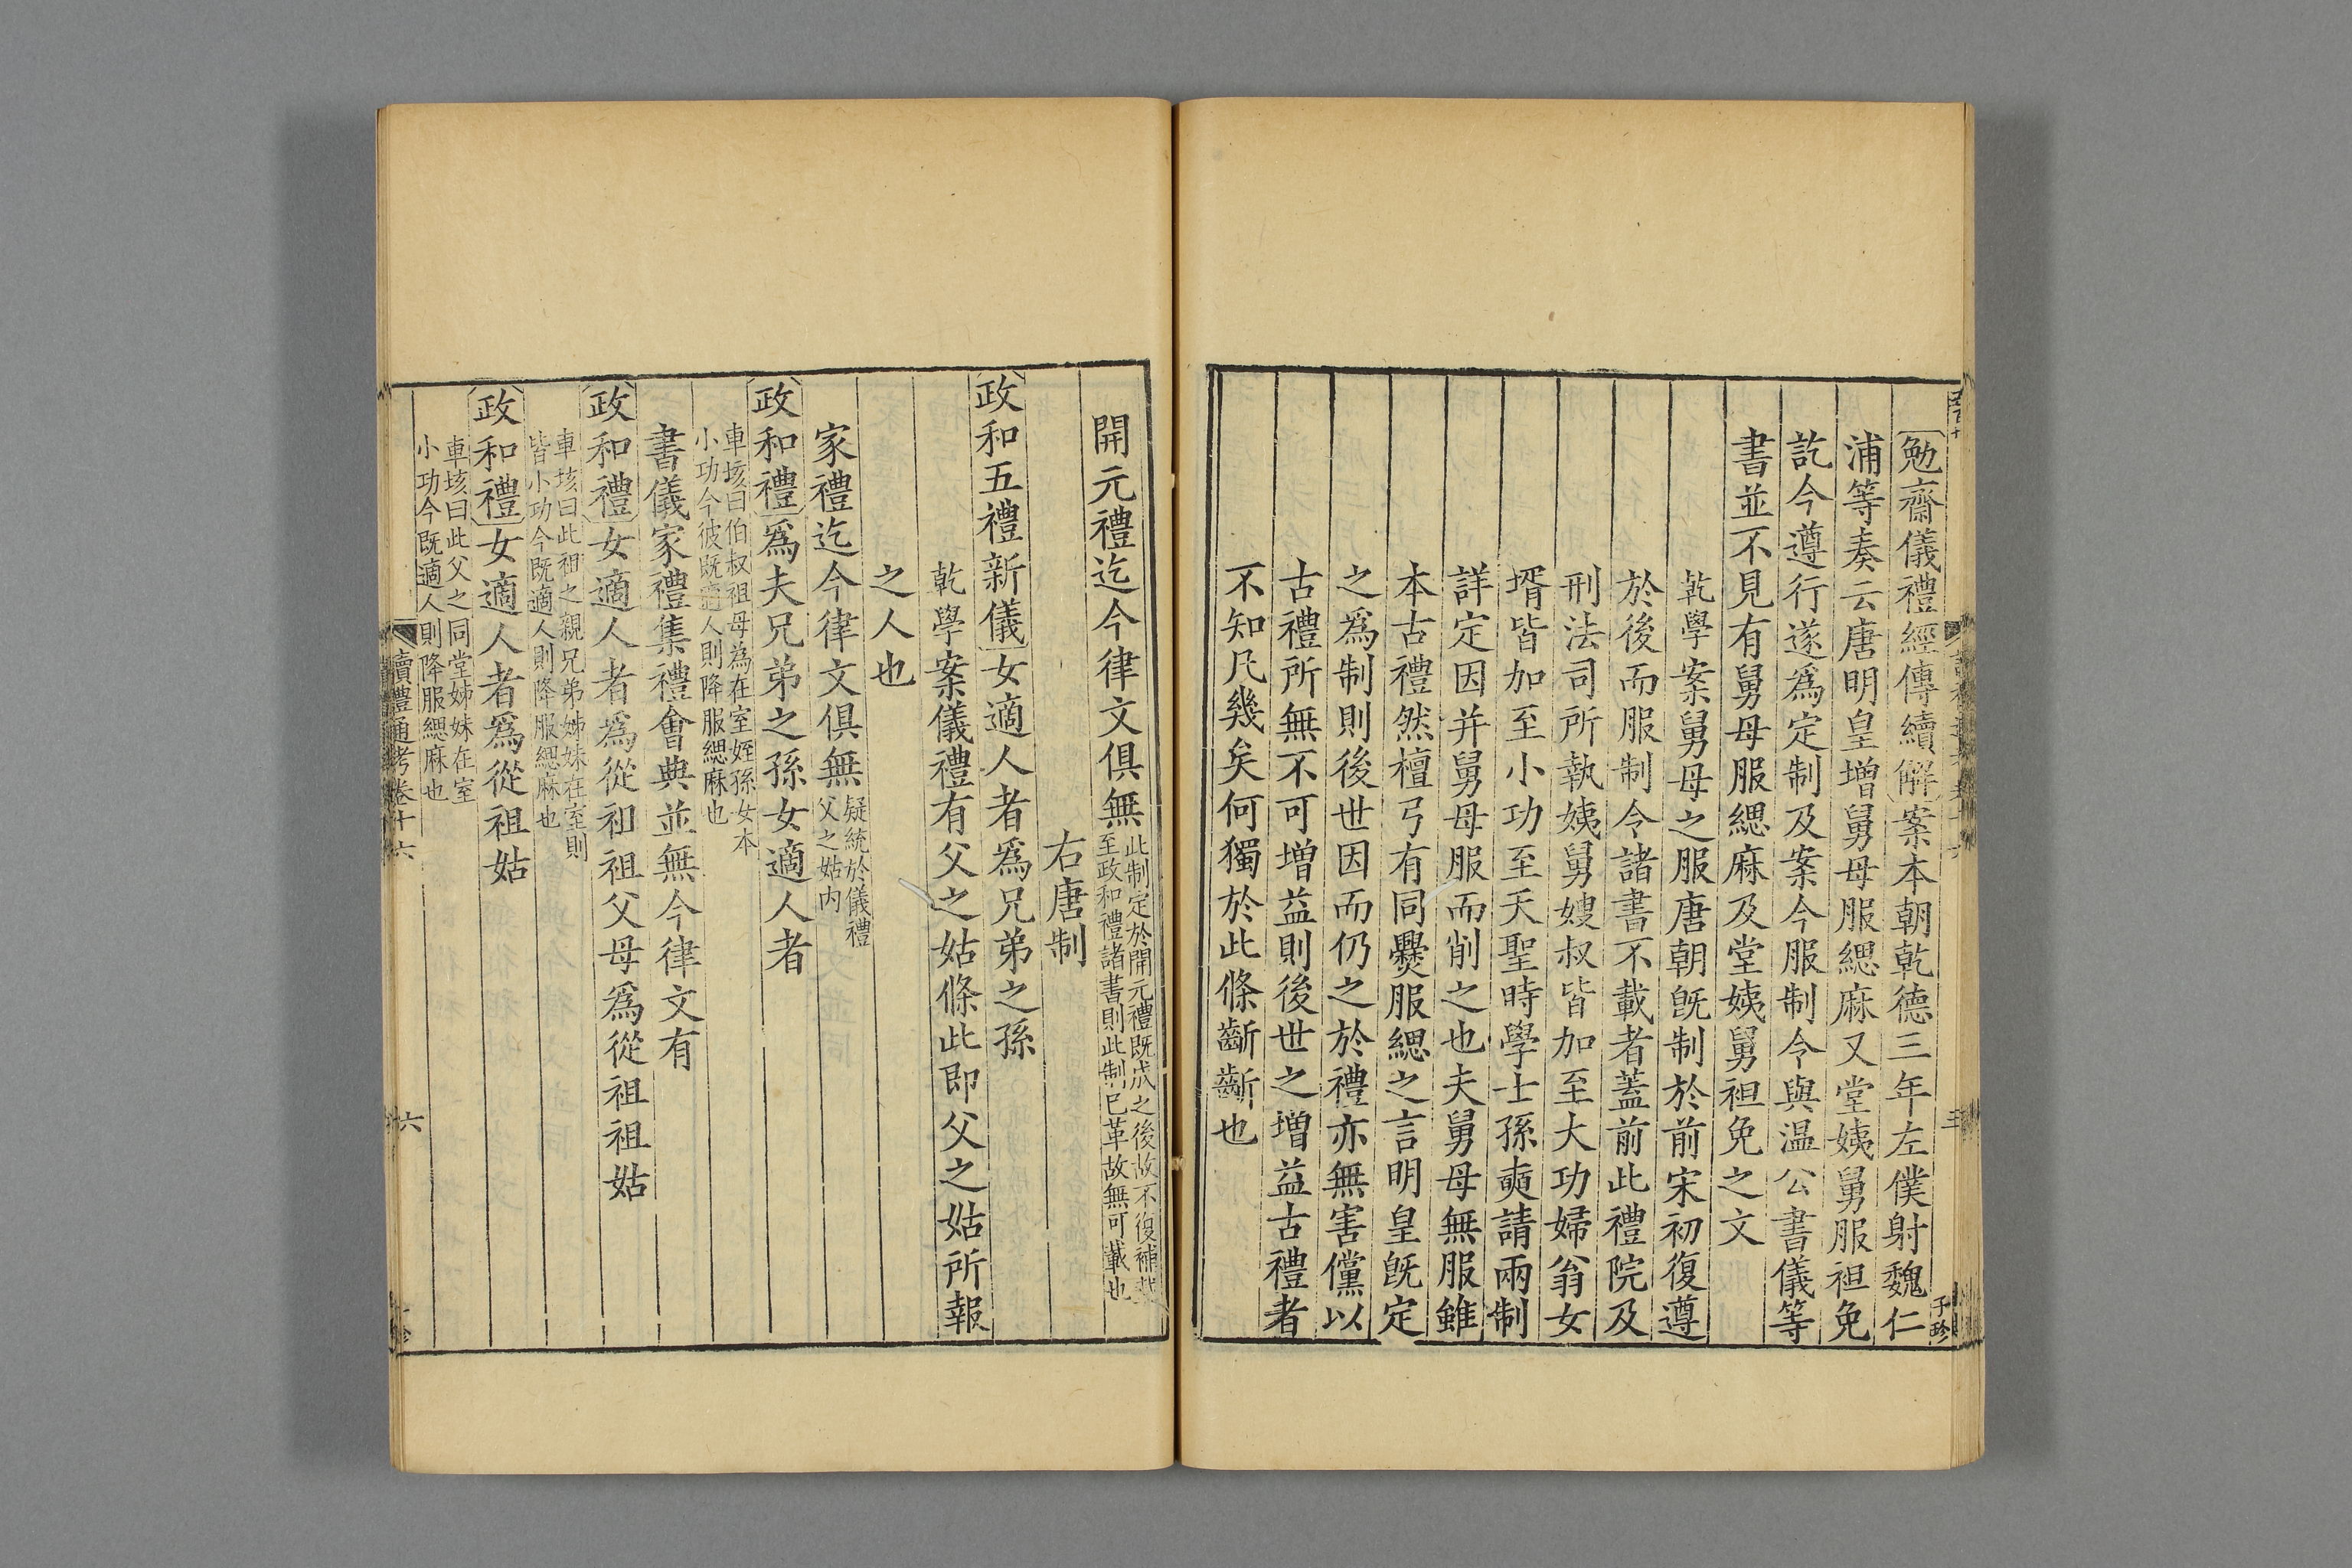 勉齋儀禮經傳續解案本朝乾德三年左僕射魏仁
浦等奏云唐明皇增舅母服緦麻又堂姨舅服袒免
訖今遵行遂爲定制及案今服制令與温公書儀等
書並不見有舅母服緦麻及堂姨舅袒免之文
乾學案舅母之服唐朝旣制於前宋初復遵
於後而服制令諸書不載者蓋前此禮院及
刑法司所執姨舅嫂叔皆加至大功婦翁女
壻皆加至小功至天聖時學士孫奭請兩制
詳定因并舅母服而削之也夫舅母無服雖
本古禮然檀弓有同爨服緦之言明皇旣定
之爲制則後世因而仍之於禮亦無害儻以
古禮所無不可增益則後世之增益古禮者
不知凡幾矣何獨於此條齗齗也
三
子珍
開元禮迄今律文俱無此制定於開元禮既成之後故不復補載
至政和禮諸書則此制已革故無可載也
右唐制
政和五禮新儀女適人者爲兄弟之孫
乾學案儀禮有父之姑條此即父之姑所報
之人也
家禮迄今律文俱無疑統於儀禮
父之姑內
政和禮爲夫兄弟之孫女適人者
車垓曰伯叔祖母為在室姪孫女本
小功今彼既適人則降服緦麻也
書儀家禮集禮會典並無今律文有
政和禮女適人者爲從祖祖父母爲從祖祖姑
車垓曰此祖之親兄弟姊妹在室則
皆小功今既適人則降服緦麻也
政和禮女適人者爲從祖姑
車垓曰此父之同堂姊妹在室
小功今既適人則降服緦麻也
讀禮通考卷十六
六